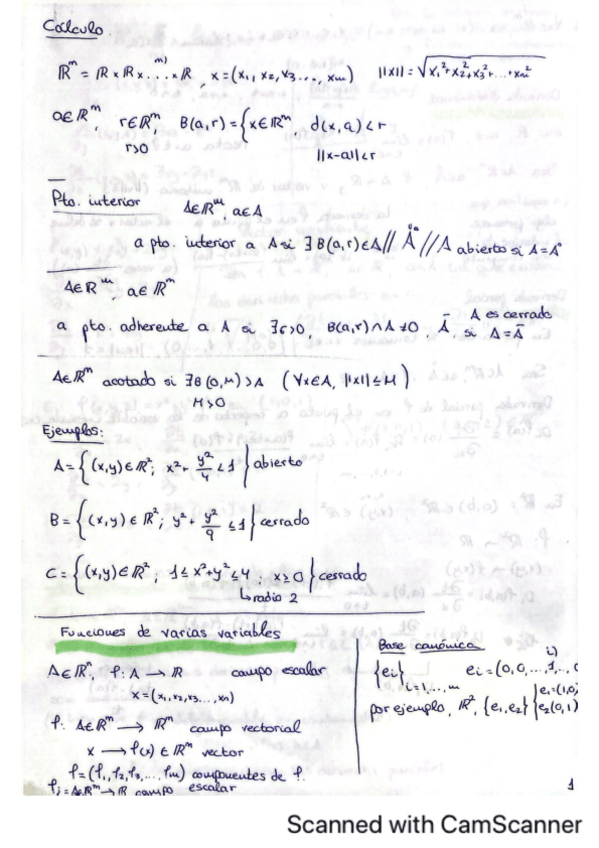 Cálculo
ℝᵐ = ℝ x ℝ x . . . . x ℝ , x = (x₁, x₂, x₃ ...., xₘ) ||x|| = √x₁² + x₂² + x₃² + ... + xₘ²
a∈ℝᵐ, r∈ℝᵐ B(a,r) = {x∈ℝᵐ, d(x,a) < r
r>0 ||x-a|| < r
Pto. interior A∈ℝᵐ, a∈A
a pto. interior a A si ∃ B(a,r)∈A // Å // A abierto si A = A°
A∈ℝᵐ, a∈ℝᵐ
a pto. adherente a A si ∃r>0, B(a,r)∩A ≠0, Ā, A es cerrado si A = Ā
A∈ℝᵐ acotado si ∃B(0,M)>A (∀x∈A, ||x|| ≤ M)
M>0
Ejemplos:
A = {(x,y)∈ℝ²; x² + y²/4 < 1} abierto
B = {(x,y)∈ℝ²; y² + y²/9 ≤ 1} cerrado
C = {(x,y)∈ℝ², 1 ≤ x²+y² ≤ 4 ; x≥0} cerrado
↳ radio 2
Funciones de varias variables
A∈ℝⁿ, f: A → ℝ campo escalar
x = (x₁, x₂, x₃, ..., xₙ)
f: A∈ℝⁿ → ℝᵐ campo vectorial
x → f(x) ∈ ℝᵐ vector
f = (f₁, f₂, f₃, ... fₘ) componentes de f.
fⱼ = A∈ℝᵐ → ℝ campo escalar
Base canónica
{ei} ei = (0,0,...,1,..
i=1,...,m
por ejemplo, ℝ², {e₁,e₂} {e₁=(1,0)
e₂(0,1)
1
Scanned with CamScanner